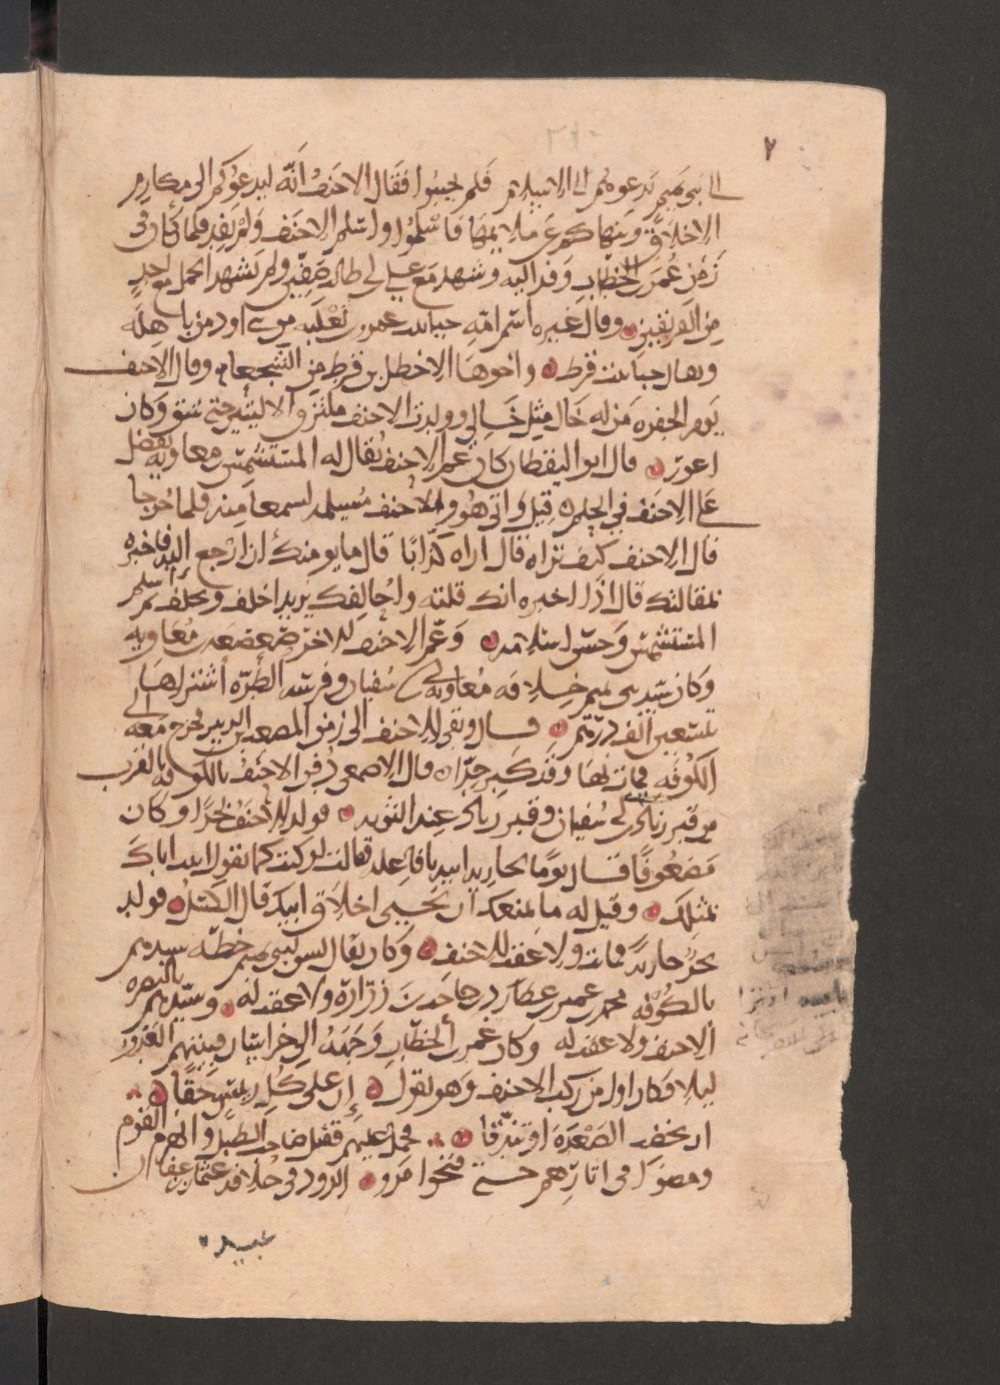 ٢
الى بنى تميم يدعوهم الى الاسلام فلم يجيبوا فقال الاحنف انه ليدعوكم الى مكارم
الاخلاق وينهاكم عن ملايمها فاسلموا واسلم الاحنف ولم يفد فلما كان فى
زمن عمر بن الخطاب وفد اليه وشهد مع على بن ابى طالب صفين ولم يشهد الجمل مع احد
من الفريقين وقال غيره اسم امه حبا بنت عمرو بن ثعلبه من بنى اود من باهله
ويقال حبا بنت قرط واخوها الاخطل بن قرط من الشجعان وقال الاحنف
يوم الجفره من له خال مثل خالى وولد الاحنف ملتزق الاليتين حتى شق وكان
اعور قال ابو اليقظان كان عم الاحنف يقال له المتشمس معاويه يفضل
على الاحنف فى الحلم قيل واتى هو والاحنف مسيلمه ليسمعا منه فلما خرجا
قال الاحنف كيف تراه قال اراه كذابا قال ما يومنك ان ارجع اليه فاخبره
بمقالتك قال اذا اخبره انك قلته واحالفك يريد احلف وتحلف ثم اسلم
المتشمس وحسن اسلامه وعم الاحنف الاخر صعصعه بن معاويه
وكان سيد بنى تميم خلافه معاويه بن ابى سفيان وفرسه الطره اشتراها
بتسعين الف درهم قال وبقى الاحنف الى زمن المصعب بن الزبير فخرج معه الى
الكوفه فمات بها وقد كبر جدا قال الاصمعى دفن الاحنف بالكوفه بالقرب
من قبر زياد بن ابى سفيان وقبر زياد عند الثويه فولد الاحنف بحرا وكان
مضعوفا قال يوما لجاريه ابيه يا فاعله فقالت لو كنت كما تقول اتيت اباك
بمثلك وقيل له ما يمنعك ان تجرى فى اخلاق ابيك قال الكسل فولد
بحر جاريه فماتت ولا عقب للاحنف وكان يقال ليس لبنى تميم خطه سيدهم
بالكوفه محمد بن عمير بن عطارد بن حاجب بن زراره ولا عقب له وسيدهم بالبصره
الاحنف ولا عقب له وكان عمر بن الخطاب وجهه الى خراسان فبيتهم العدو
ليلا فكان اول من ركب الاحنف وهو يقول ان على كل رييس حقا
ان يخضب الصعده او تندقا ثم حمل عليهم فقتل صاحب الطبل وانهزم القوم
ومضوا فى اثارهم حتى فتحوا مرو الروذ فى خلافه عثمان بن عفان